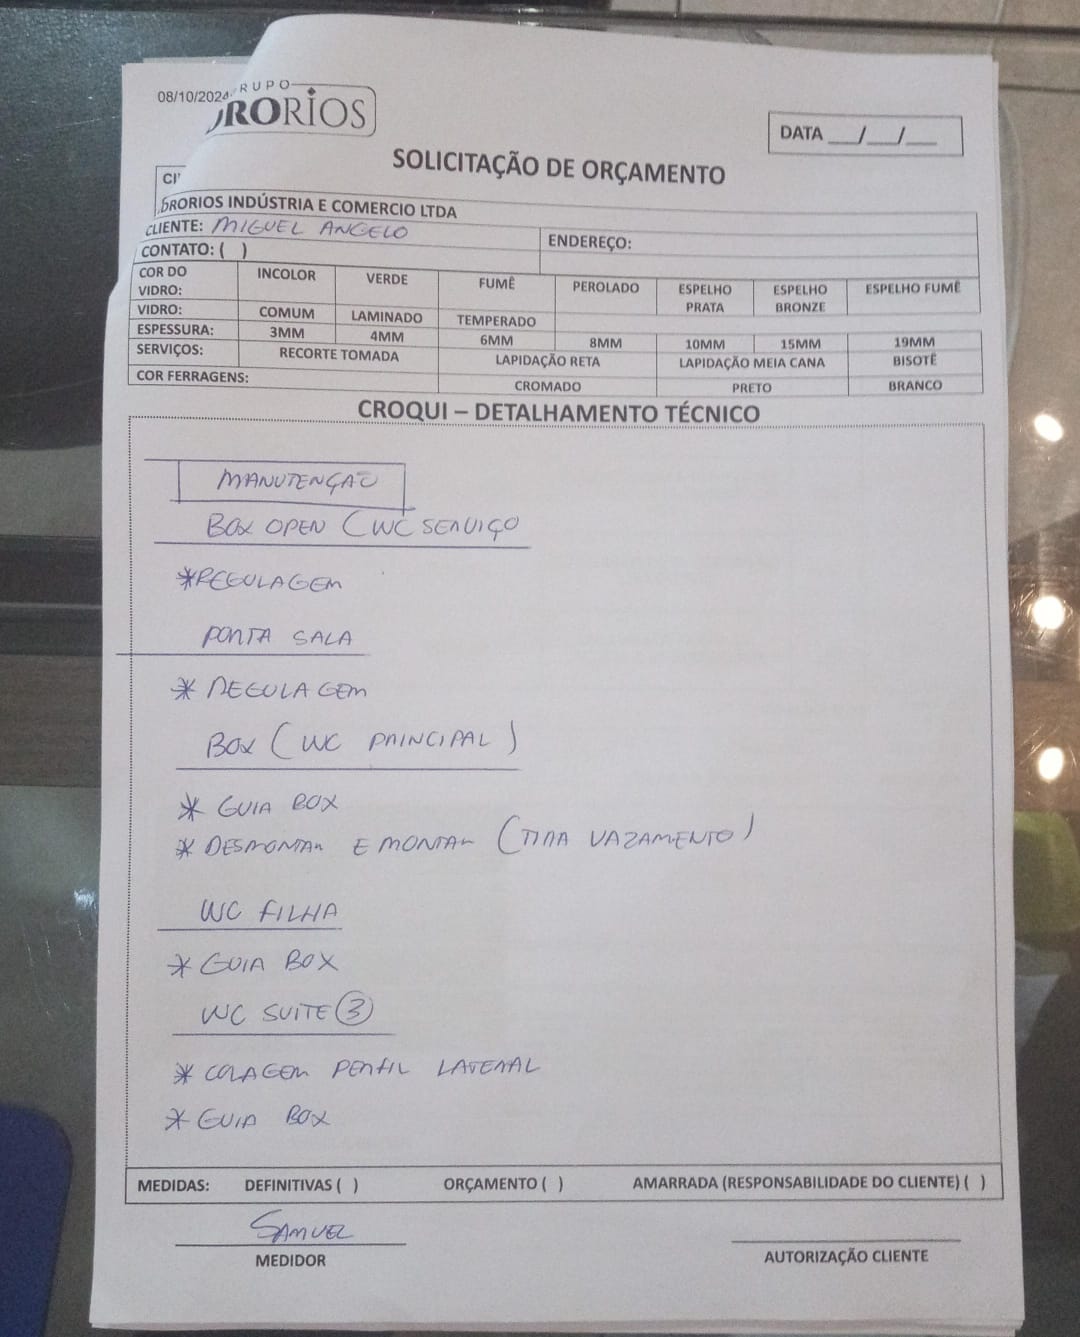 08/10/2024
RUPO
RORIOS
DATA __/__/__
SOLICITAÇÃO DE ORÇAMENTO
DRORIOS INDÚSTRIA E COMERCIO LTDA
CLIENTE: MIGUEL ANGELO
ENDEREÇO:
CONTATO: ( )
COR DO VIDRO: INCOLOR VERDE FUMÊ PEROLADO ESPELHO PRATA ESPELHO BRONZE ESPELHO FUMÊ
VIDRO: COMUM LAMINADO TEMPERADO
ESPESSURA: 3MM 4MM 6MM 8MM 10MM 15MM 19MM
SERVIÇOS: RECORTE TOMADA LAPIDAÇÃO RETA LAPIDAÇÃO MEIA CANA BISOTÊ
COR FERRAGENS: CROMADO PRETO BRANCO
CROQUI – DETALHAMENTO TÉCNICO
MANUTENÇÃO
BOX OPEN (WC SERVIÇO
*REGULAGEM
PORTA SALA
* REGULAGEM
BOX (WC PRINCIPAL)
* GUIA BOX
* DESMONTAR E MONTAR (TIRA VAZAMENTO)
WC FILHA
* GUIA BOX
WC SUITE 3
* COLAGEM PERFIL LATERAL
* GUIA BOX
MEDIDAS: DEFINITIVAS ( ) ORÇAMENTO ( ) AMARRADA (RESPONSABILIDADE DO CLIENTE) ( )
SAMUEL
MEDIDOR
AUTORIZAÇÃO CLIENTE